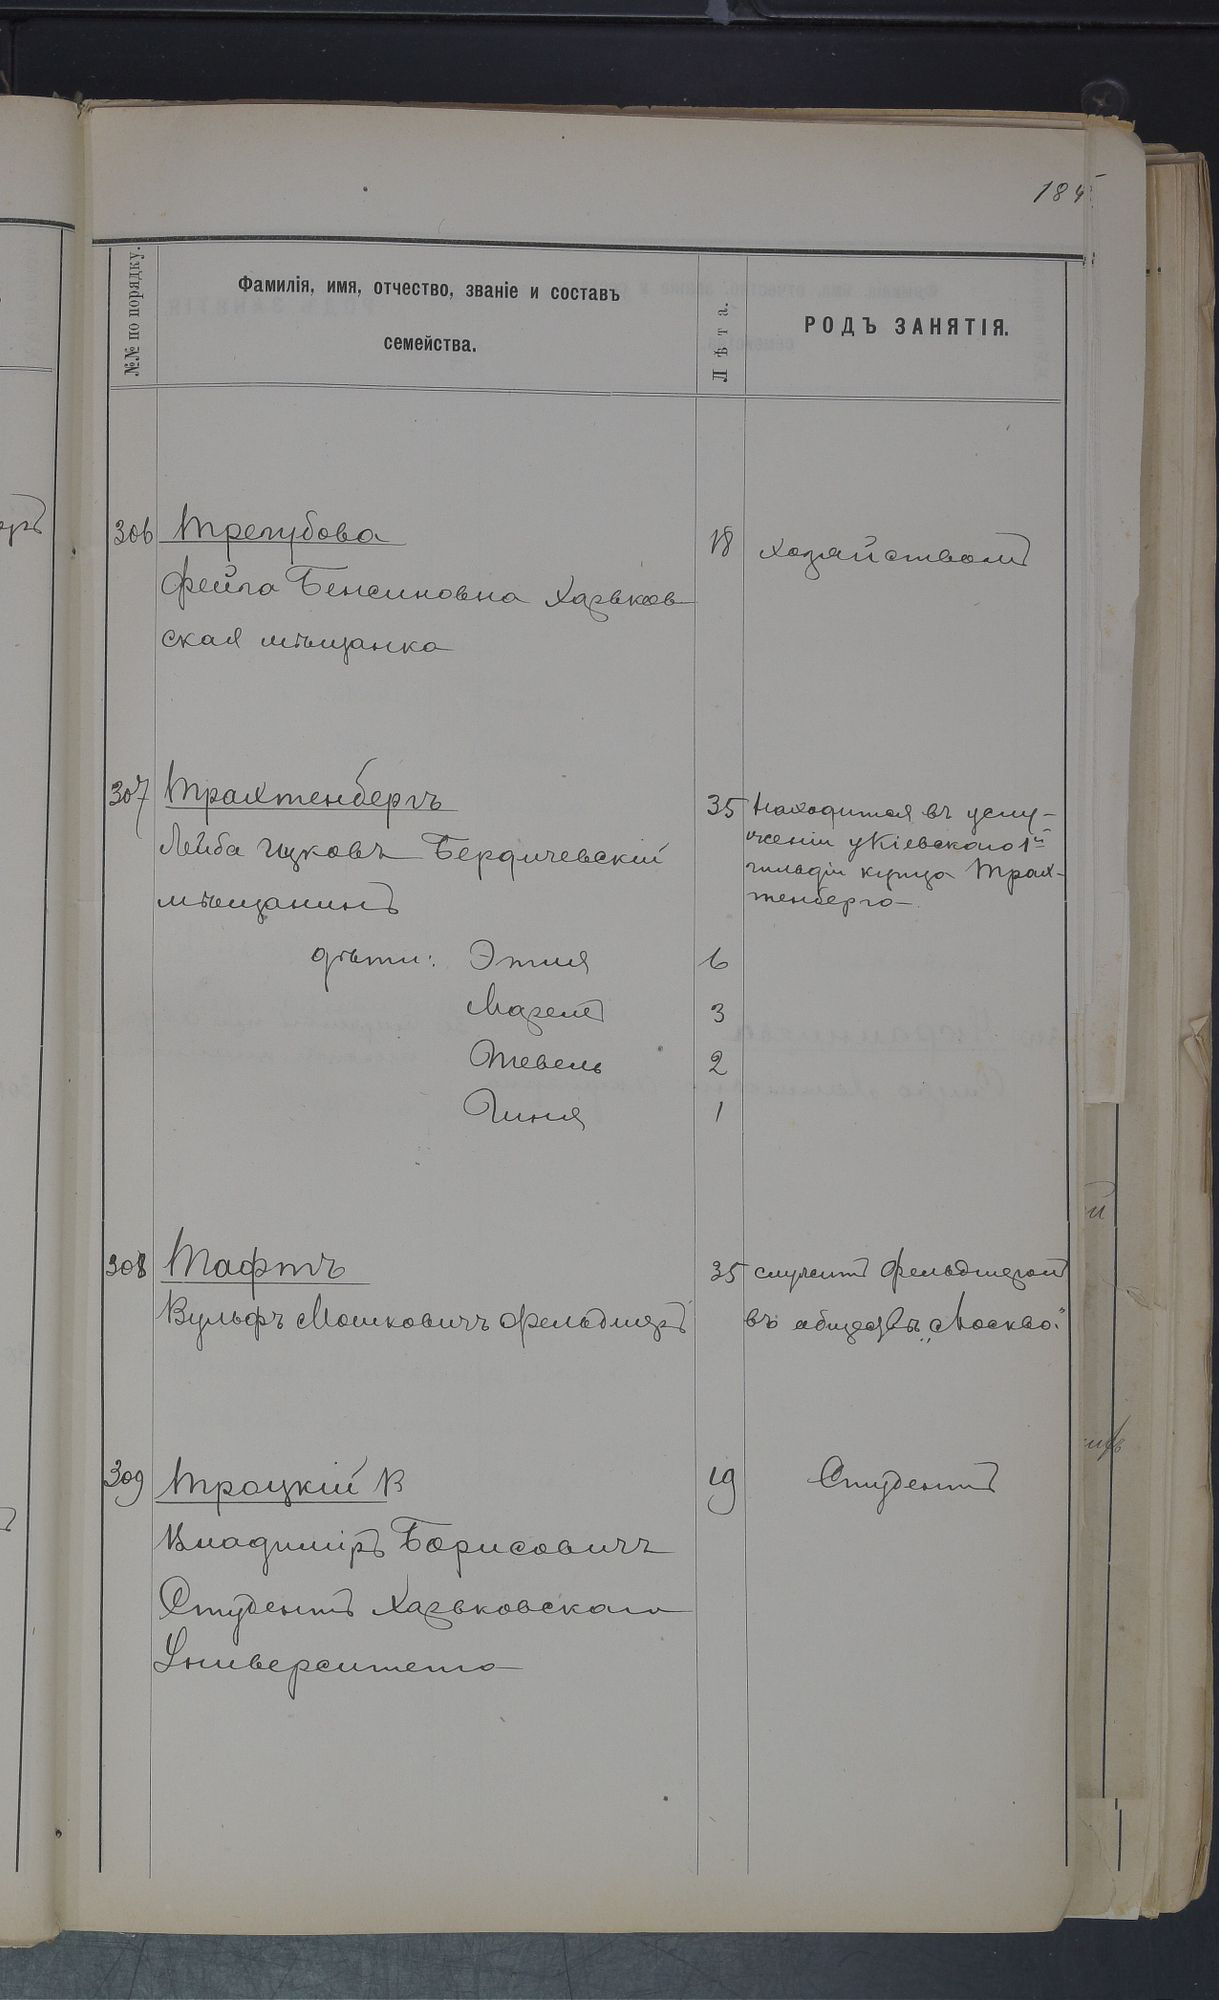 185
№№ по порядку.
Фамилія, имя, отчество, званіе и составъ
семейства.
Лѣта.
РОДЪ ЗАНЯТІЯ.
306 Трегубова 18 хозяйствомъ
Фейга Бенсиновна Харьков
ская мѣщанка
307 Трахтенбергъ 35 Находится въ услу-
Лейба Ицковъ Бердичевскій
женіи у Кіевскаго 1й
гильдіи купца Трах-
мѣщанинъ
тенберга
дѣти: Этля 6
3
Тевель 2
Гиня 1
308 Тафтъ 35 служитъ фельдшеромъ
Вульфъ Мошковичъ фельдшеръ въ обществѣ „Москва"
309 Троцкій В 19 Студентъ
Владиміръ Борисовичъ
Студентъ Харьковскаго
Университета